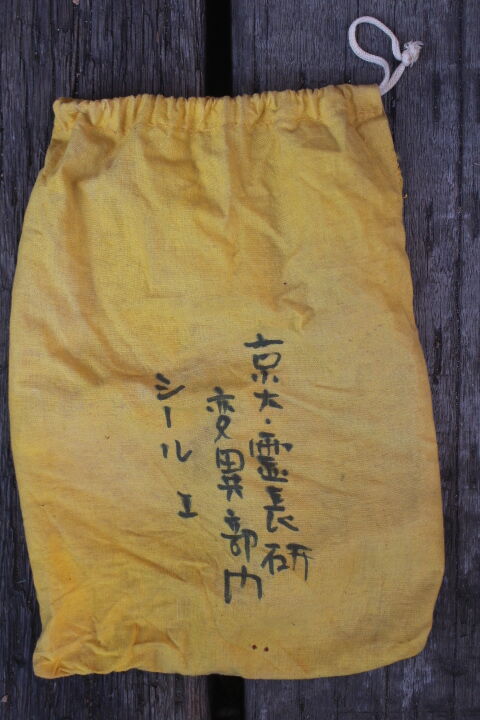 京大・霊長研
変異部内
シール エ